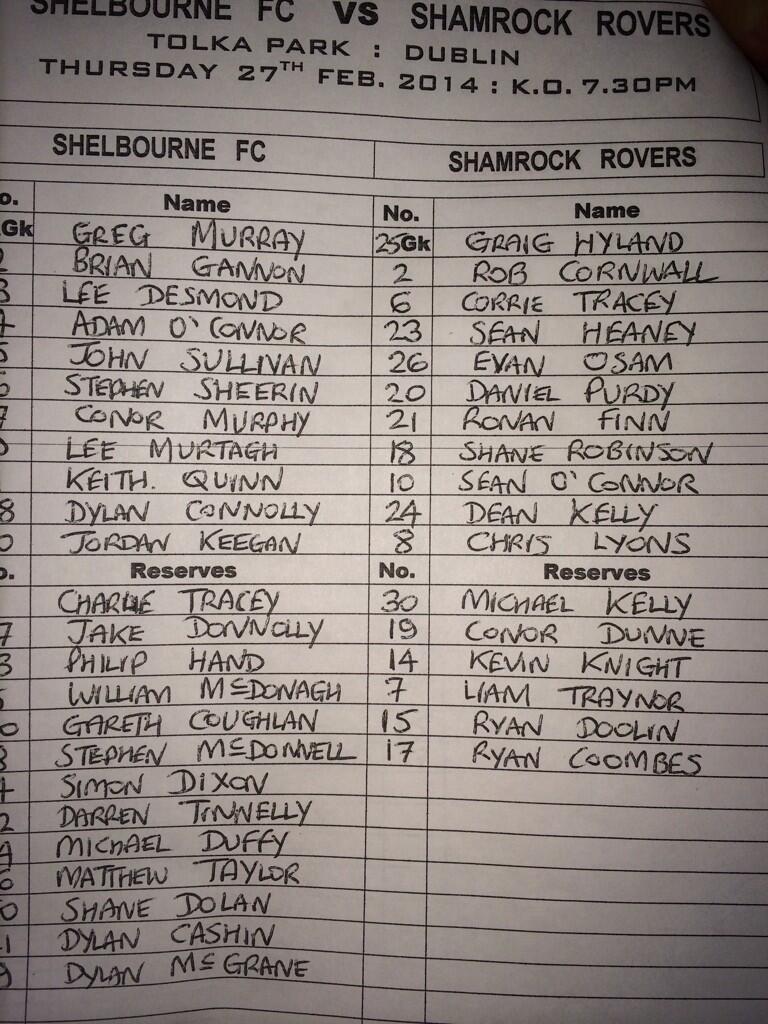 SHELBOURNE FC VS SHAMROCK ROVERS
TOLKA PARK : DUBLIN
THURSDAY 27TH FEB. 2014 : K.O. 7.30PM
SHELBOURNE FC SHAMROCK ROVERS
o. Name No. Name
Gk GREG MURRAY 25Gk GRAIG HYLAND
2 BRIAN GANNON 2 ROB CORNWALL
3 LEE DESMOND 6 CORRIE TRACEY
4 ADAM O'CONNOR 23 SEAN HEANEY
5 JOHN SULLIVAN 26 EVAN OSAM
6 STEPHEN SHEERIN 20 DANIEL PURDY
7 CONOR MURPHY 21 RONAN FINN
LEE MURTAGH 18 SHANE ROBINSON
KEITH. QUINN 10 SEAN O'CONNOR
8 DYLAN CONNOLLY 24 DEAN KELLY
0 JORDAN KEEGAN 8 CHRIS LYONS
o. Reserves No. Reserves
CHARLIE TRACEY 30 MICHAEL KELLY
7 JAKE DONNOLLY 19 CONOR DUNNE
3 PHILIP HAND 14 KEVIN KNIGHT
5 WILLIAM McDONAGH 7 LIAM TRAYNOR
0 GARETH COUGHLAN 15 RYAN DOOLIN
3 STEPHEN McDONNELL 17 RYAN COOMBES
4 SIMON DIXON
2 DARREN TINNELLY
9 MICHAEL DUFFY
6 MATTHEW TAYLOR
0 SHANE DOLAN
1 DYLAN CASHIN
9 DYLAN McGRANE